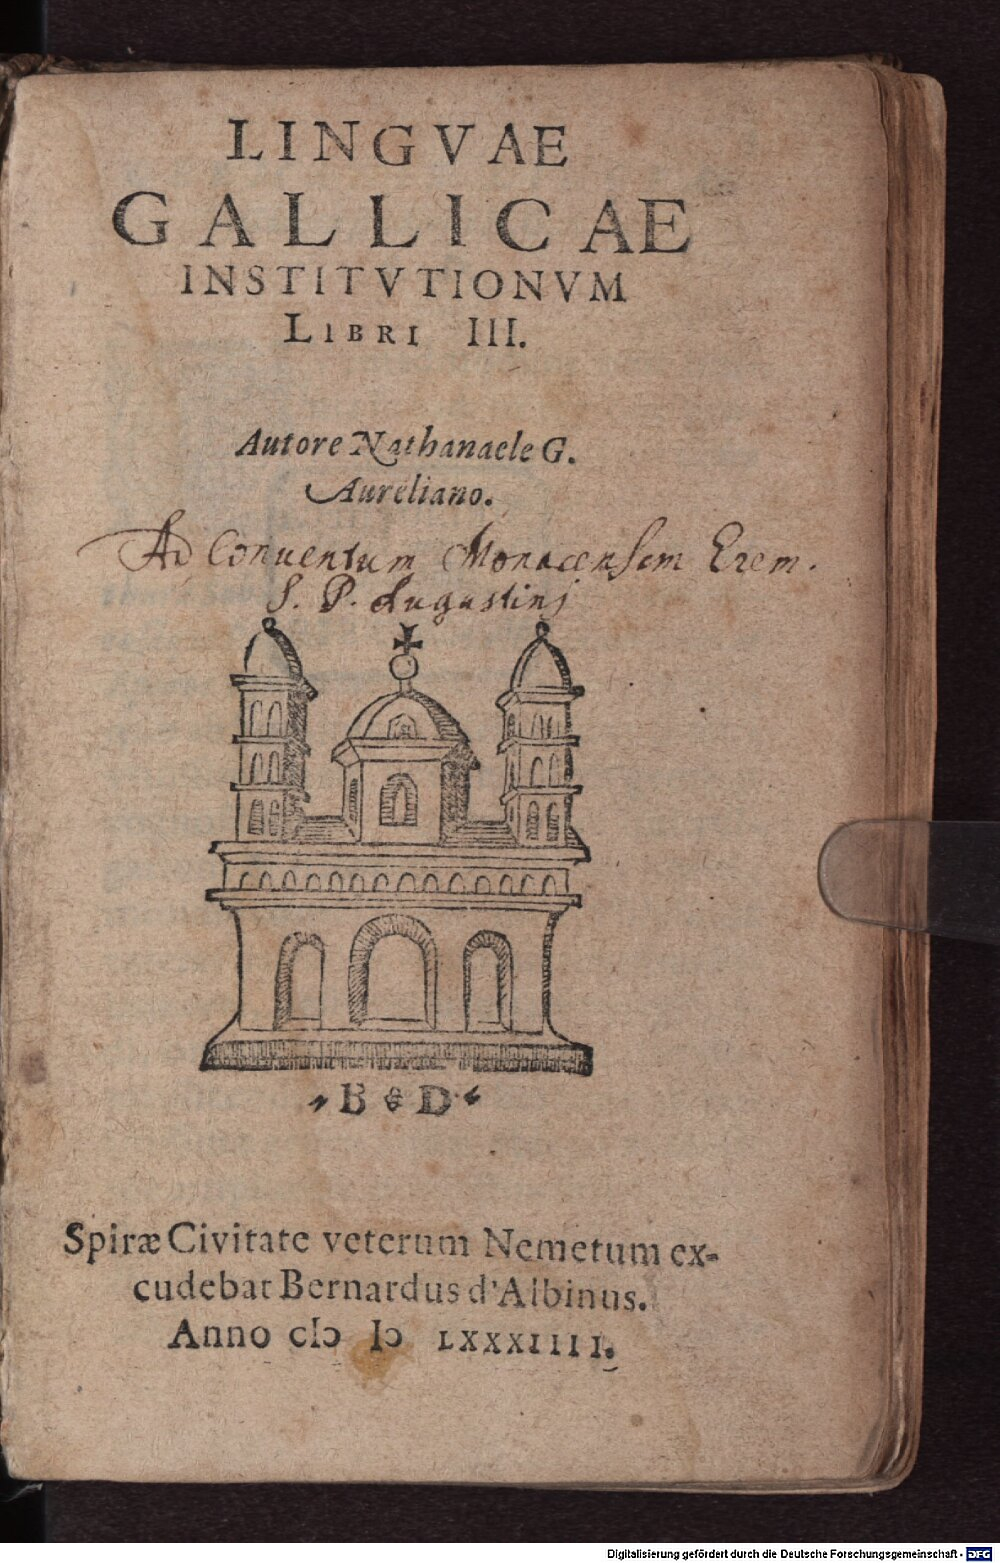 LINGVAE
GALLICAE
INSTITVTIONVM
LIBRI III.
Autore Nathanaele G.
Aureliano.
Ad Conuentum Monacensem Erem.
S. P. Augustinj
B D
Spiræ Civitate veterum Nemetum ex-
cudebat Bernardus d'Albinus.
Anno cIↄ Iↄ LXXXIIII.
Digitalisierung gefördert durch die Deutsche Forschungsgemeinschaft - DFG